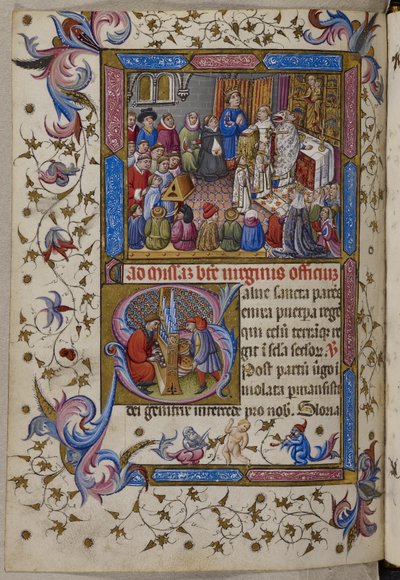 ad missaz bte virginis officiuz
Salue sancta parēs
enixa puerpa regē
qui celū terrāqz re
git ī secla seclor. V
Post partū vgo ī
uiolata pmansisti
dei genitrix intercede pro nob. Gloria